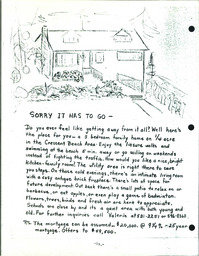 SORRY IT HAS TO GO -
Do you ever feel like getting away from it all? Well here's
the place for you - a 3 bedroom family home on 1/4 acre
in the Crescent Beach Area. Enjoy the leisure walks and
swimming at the beach 2 min. away or go sailing on weekends
instead of fighting the traffic. How would you like a nice, bright
kitchen-family room. The utility area is right there to save
you steps. On those cold evenings, there's an intimate living room
with a cosy antique brick fireplace. There's lots of space for
future development. Out back there's a small patio to relax on or
barbecue, or eat apples, or even play a game of badminton.
Flowers, trees, birds and fresh air are here to appreciate.
Schools are close by and its a great area with both young and
old. For further inquiries call Valerie at
P.S. The mortgage can be assumed - $20,000 @ 9 3/4 % - 25 year
mortgage. Offers to